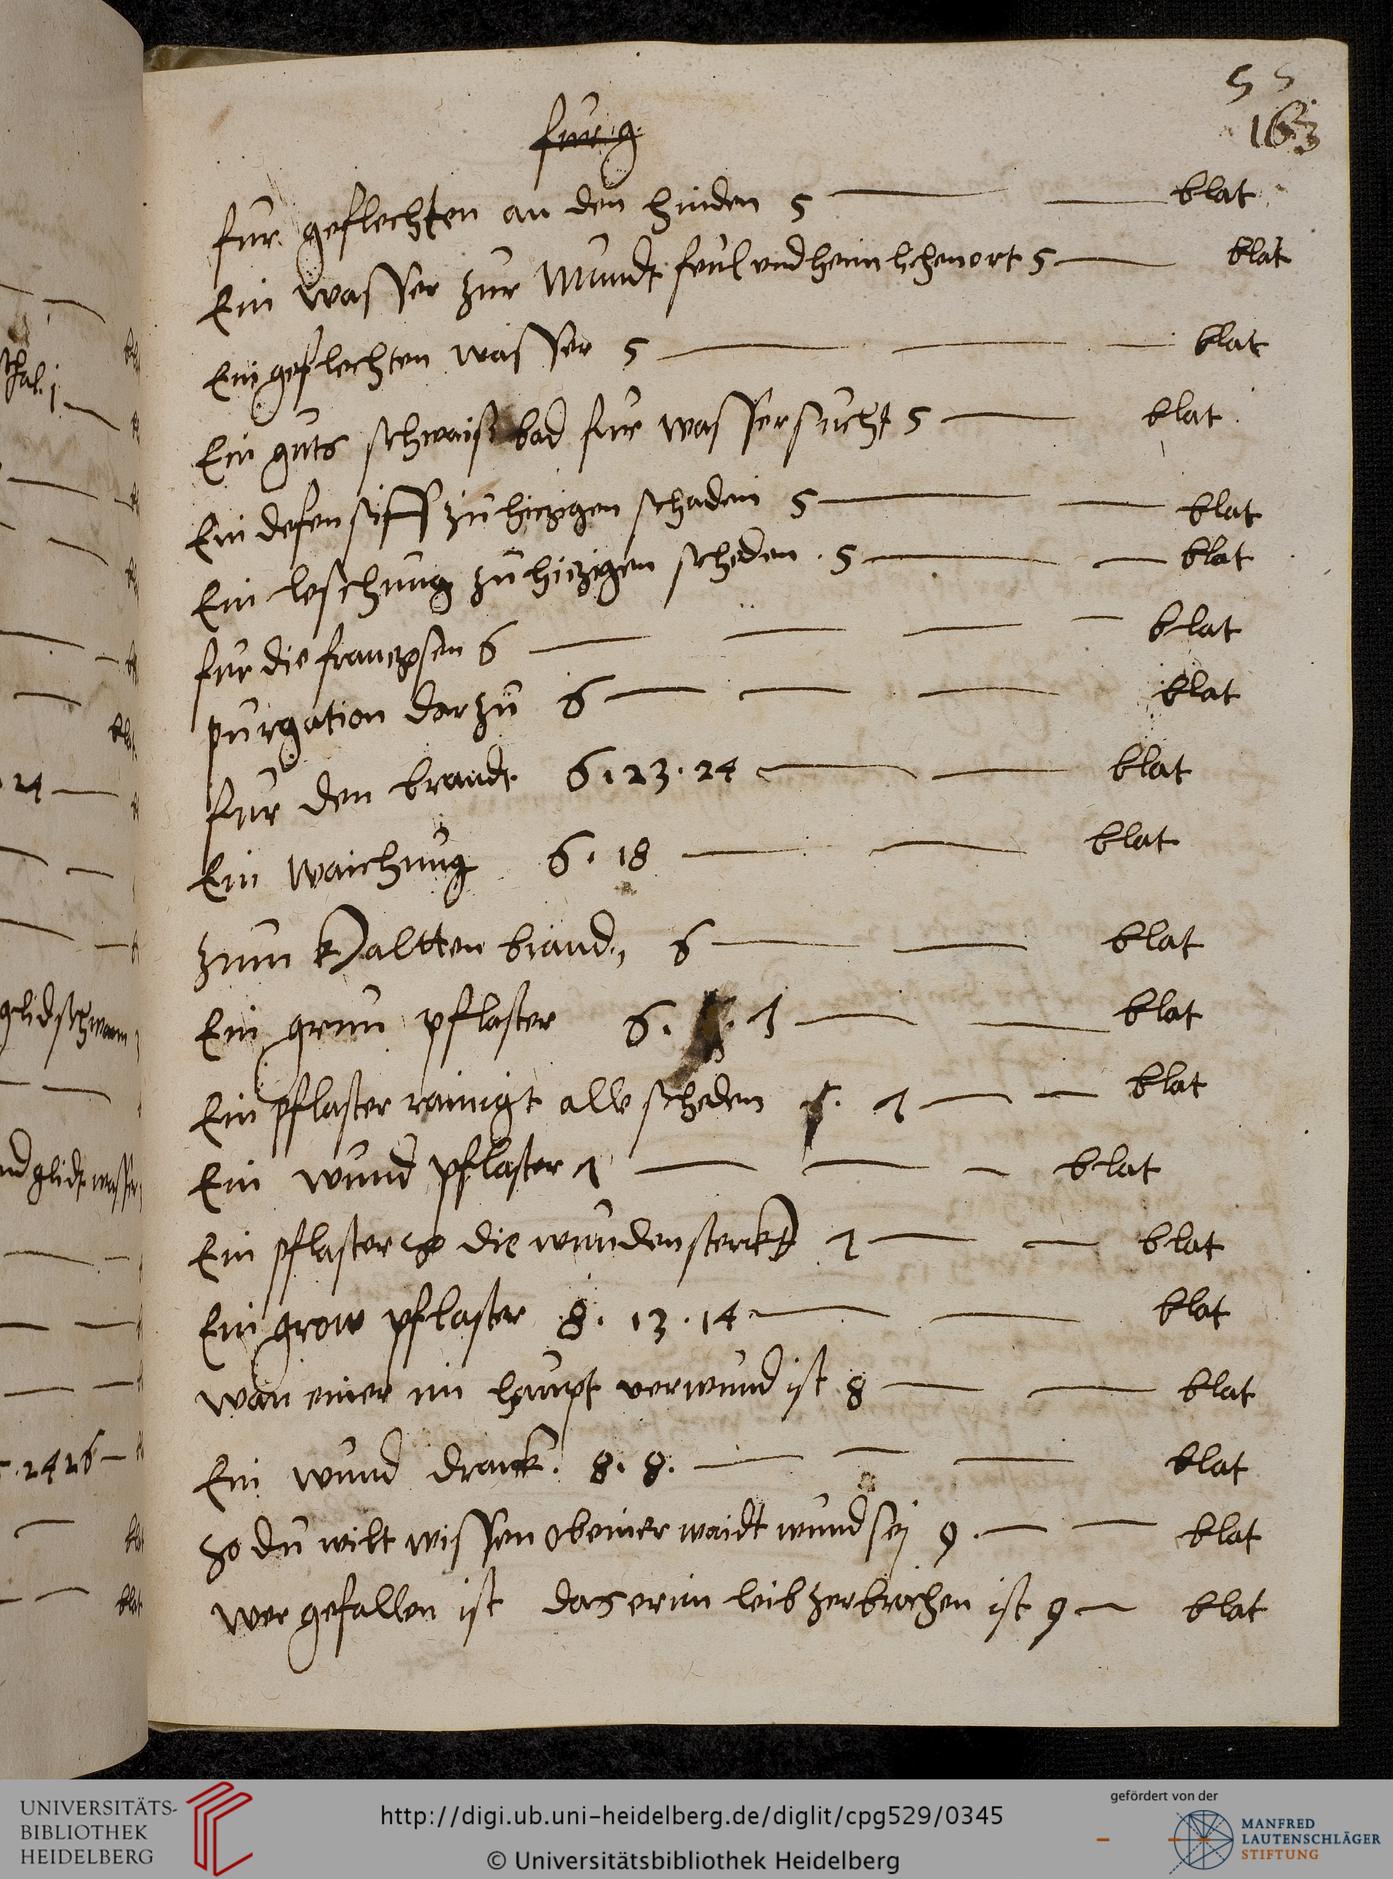 55
163
fur g
fur geflechten an den hinden 5 — — blat
Ein wasser zur Mundt feul vnd heimlichen ort 5 — blat
Ein geflechten wasser 5 — — — blat
Ein guts schwaiß bad fur wassersucht 5 — blat
Ein defensiff zu hiczigen schaden 5 — — blat
Ein leschung zu hiczigen scheden . 5 — — blat
fur die franczosen 6 — — — — blat
purgation darzu 6 — — — blat
fur den brandt 6 . 23 . 24 — — blat
Ein waichung 6 . 18 — — blat
zum kaltten brand, 6 — — blat
Ein grun pflaster 6 . 7 — — blat
Ein pflaster rainigt alle scheden 7 — — blat
Ein wund pflaster 7 — — — blat
Ein pflaster so die wunden sterckt 7 — — blat
Ein grow pflaster 8 . 13 . 14 — — blat
wan einer im haupt verwund ist 8 — — blat
Ein wund dranck . 8 . 8 . — — — blat
so du wilt wissen ob einer waidt wund sej 9 . — — blat
wer gefallen ist das er im leib zerbrochen ist 9 — blat
schal. j.
24 —
glidschwam
vnd glidt wasser
24 26 —
blat
UNIVERSITÄTS-
BIBLIOTHEK
HEIDELBERG
http://digi.ub.uni-heidelberg.de/diglit/cpg529/0345
© Universitätsbibliothek Heidelberg
gefördert von der
MANFRED
LAUTENSCHLÄGER
STIFTUNG